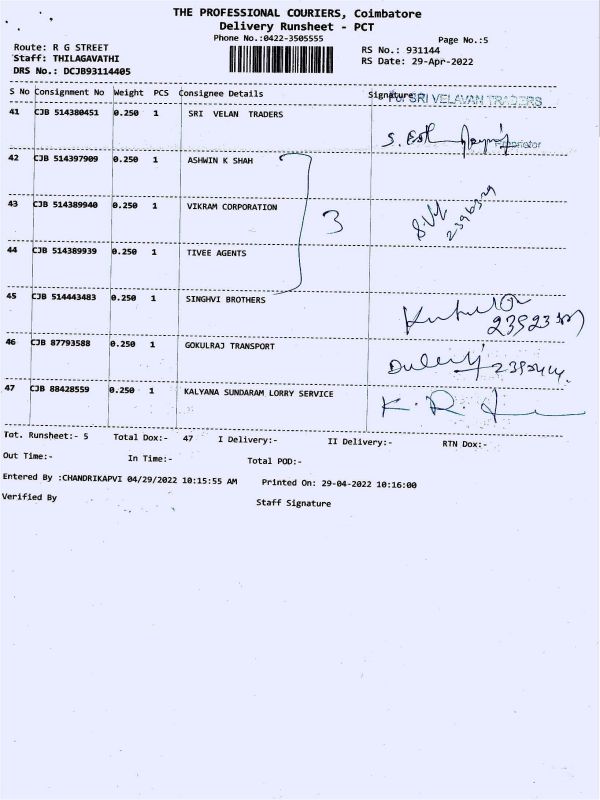 THE PROFESSIONAL COURIERS, Coimbatore
Delivery Runsheet - PCT
Phone No.:0422-3505555
Page No.:5
Route: R G STREET
RS No.: 931144
Staff: THILAGAVATHI
RS Date: 29-Apr-2022
DRS No.: DCJB93114405
S No Consignment No Weight PCS Consignee Details Signature
For SRI VELAVAN TRADERS
41 CJB 514380451 0.250 1 SRI VELAN TRADERS
Proprietor
42 CJB 514397909 0.250 1 ASHWIN K SHAH
43 CJB 514389940 0.250 1 VIKRAM CORPORATION
3
44 CJB 514389939 0.250 1 TIVEE AGENTS
45 CJB 514443483 0.250 1 SINGHVI BROTHERS
46 CJB 87793588 0.250 1 GOKULRAJ TRANSPORT
47 CJB 88428559 0.250 1 KALYANA SUNDARAM LORRY SERVICE
K. R.
Tot. Runsheet:- 5 Total Dox:- 47 I Delivery:- II Delivery:- RTN Dox:-
Out Time:- In Time:- Total POD:-
Entered By :CHANDRIKAPVI 04/29/2022 10:15:55 AM Printed On: 29-04-2022 10:16:00
Verified By Staff Signature